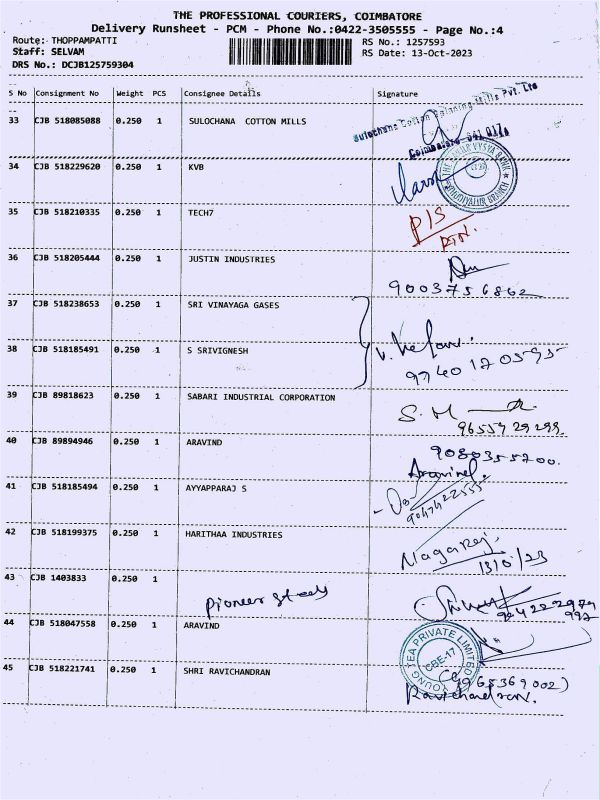 THE PROFESSIONAL COURIERS, COIMBATORE
Delivery Runsheet - PCM - Phone No.:0422-3505555 - Page No.:4
Route: THOPPAMPATTI
RS No.: 1257593
Staff: SELVAM
RS Date: 13-Oct-2023
DRS No.: DCJB125759304
S No Consignment No Weight PCS Consignee Details Signature
33 CJB 518085088 0.250 1 SULOCHANA COTTON MILLS
Sulochana Cotton Spinning Mills Pvt. Ltd
Coimbatore
34 CJB 518229620 0.250 1 KVB
35 CJB 518210335 0.250 1 TECH7
P/S
36 CJB 518205444 0.250 1 JUSTIN INDUSTRIES
9003756862
37 CJB 518238653 0.250 1 SRI VINAYAGA GASES
38 CJB 518185491 0.250 1 S SRIVIGNESH
9740170595
39 CJB 89818623 0.250 1 SABARI INDUSTRIAL CORPORATION
S. M
9655929299
40 CJB 89894946 0.250 1 ARAVIND
9080355200.
Aravind.
41 CJB 518185494 0.250 1 AYYAPPARAJ S
42 CJB 518199375 0.250 1 HARITHAA INDUSTRIES
Nagaraj.
13/0/23
43 CJB 1403833 0.250 1
Pioneer steels
44 CJB 518047558 0.250 1 ARAVIND
YOUNG TEA PRIVATE LIMITED
CBE-17
45 CJB 518221741 0.250 1 SHRI RAVICHANDRAN
Ravichandran.